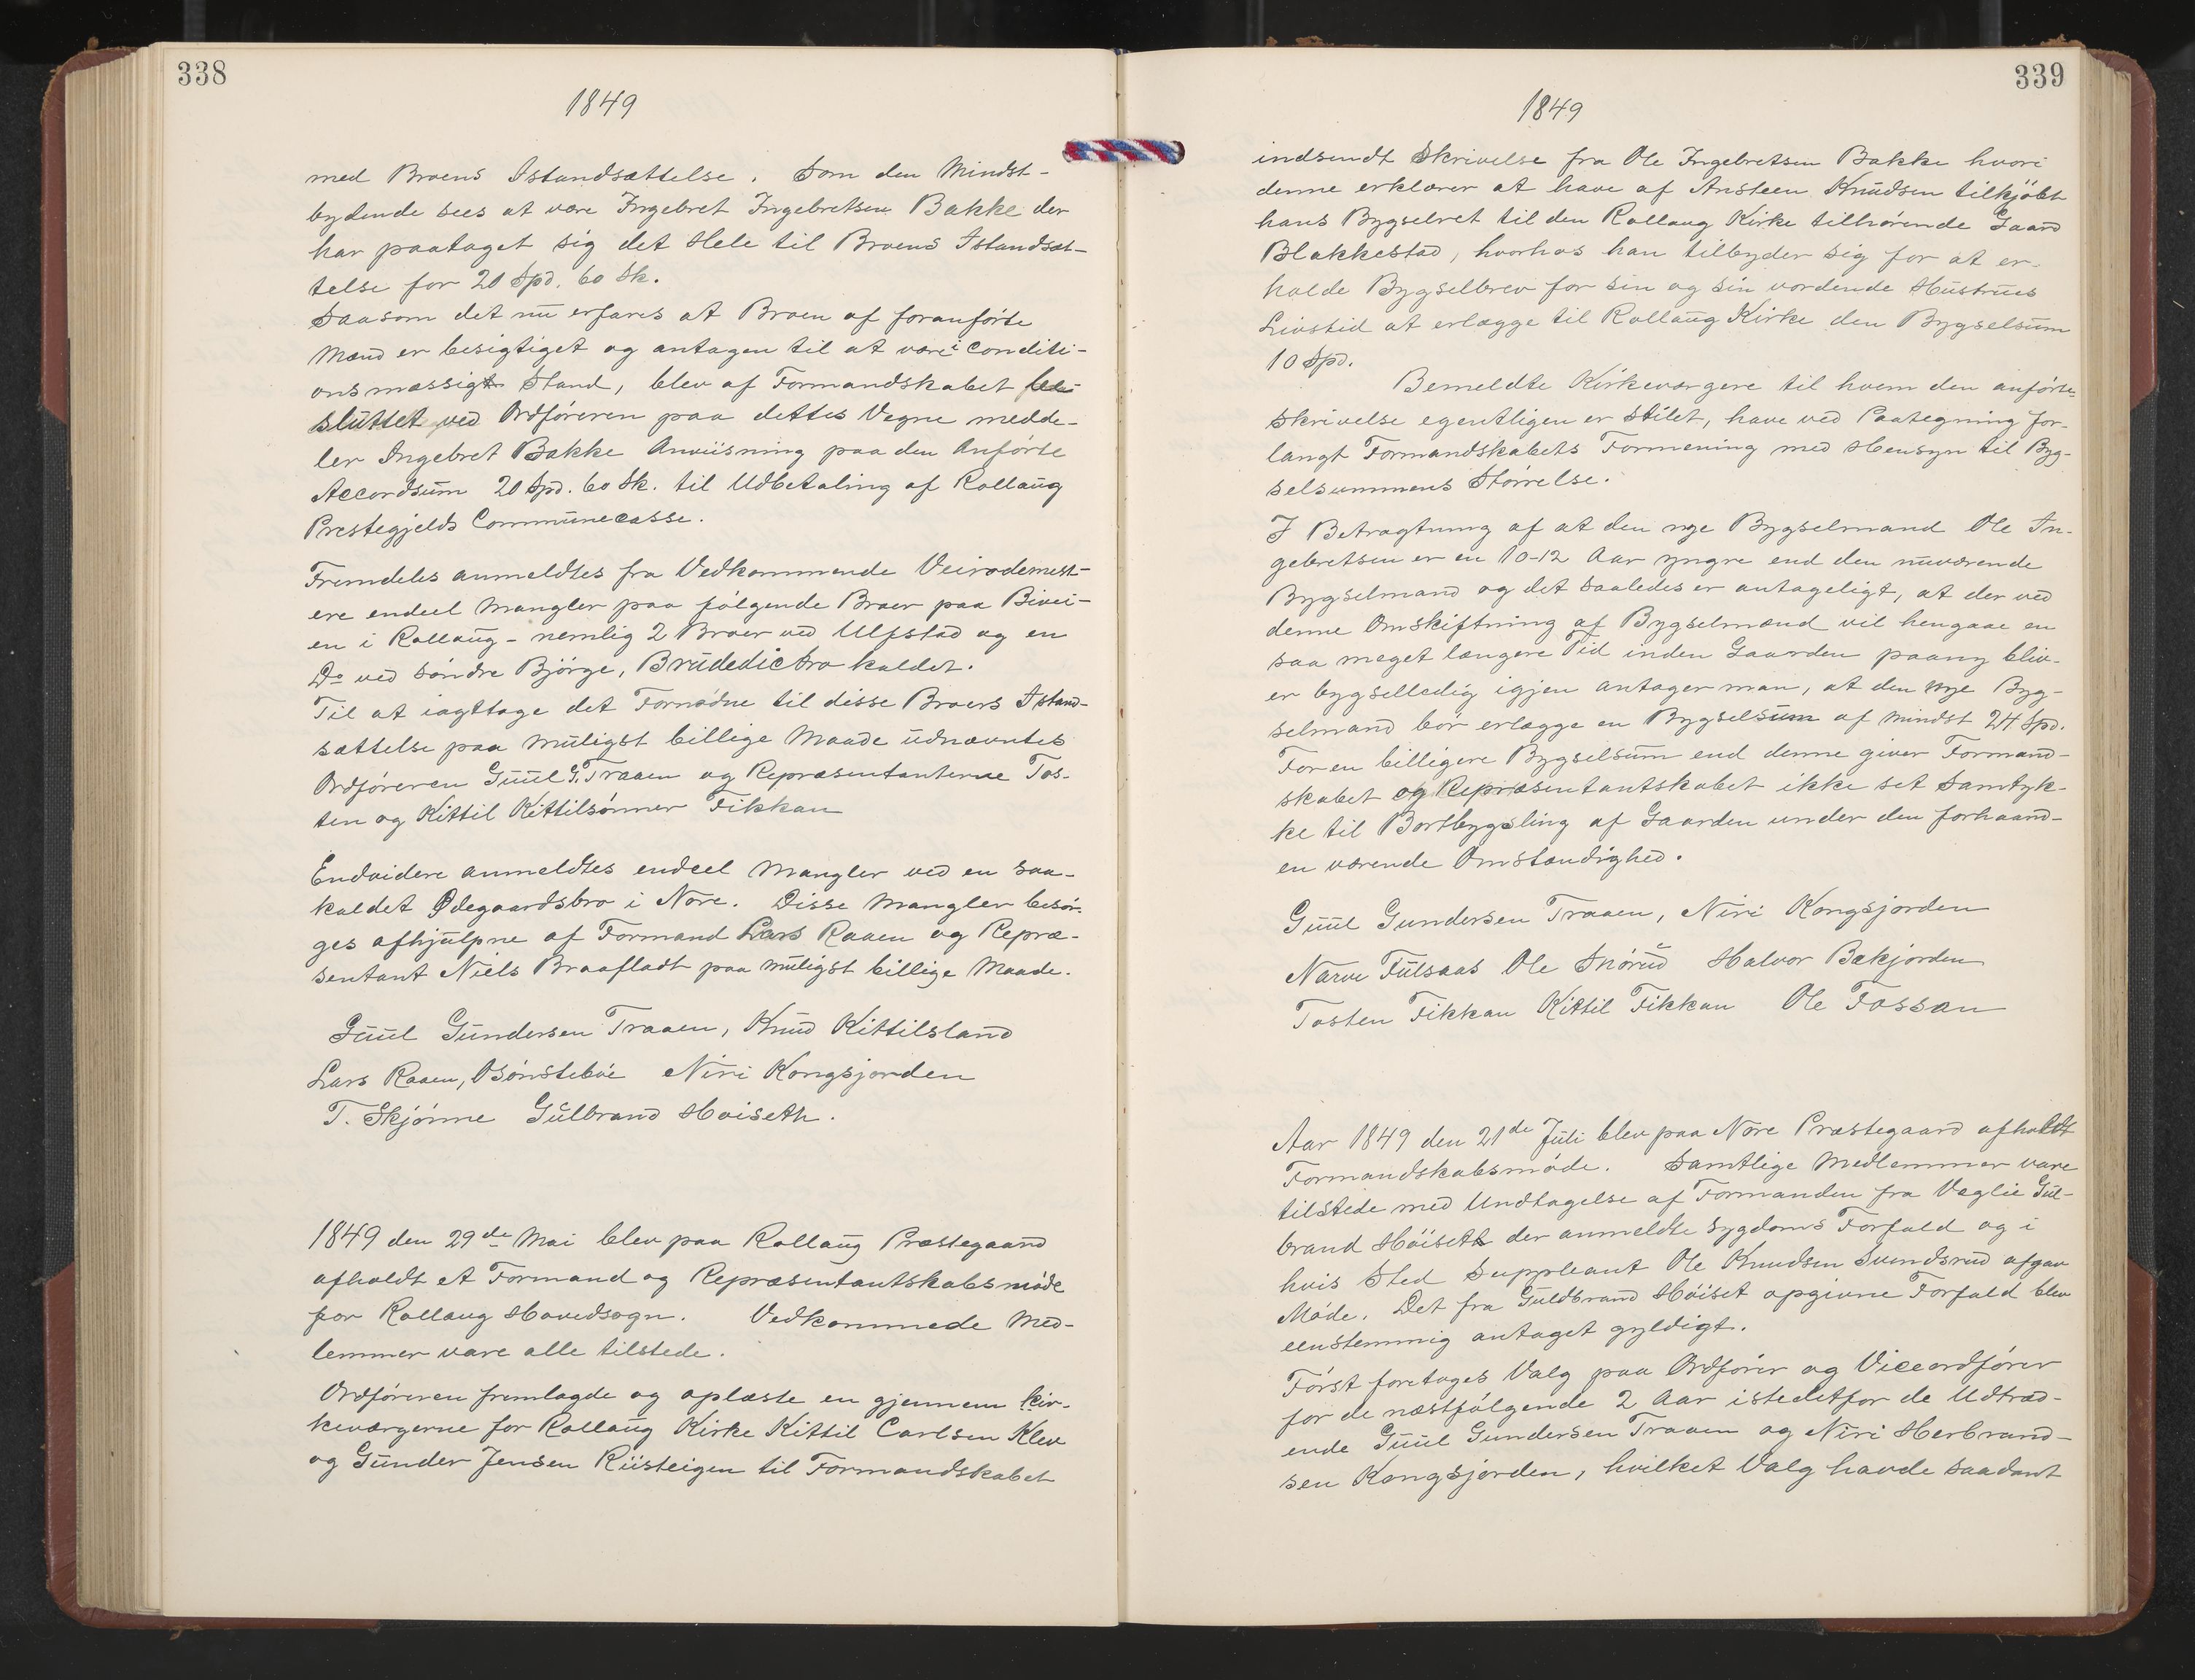 338
1849
med Broens Istandsættelse. Som den Mindst-
bydende sees at være Ingebret Ingebretsen Bakke der
har paataget sig det Hele til Broens Istandsæt-
telse for 20 Spd. 60 Sk.
Saasom det nu erfares at Broen af foranførte
Mænd er besigtiget og antagen til at være i Conditi-
onsmæssigt Stand, blev af Formandskabet be-
sluttet ved Ordføreren paa dettes Vegne medde-
ler Ingebret Bakke Anviisning paa den Anførte
Accordsum 20 Spd. 60 Sk. til Udbetaling af Rollaug
Prestegjelds Communecasse.
Fremdeles anmeldtes fra Vedkommende Veirodemest-
ere endeel Mangler paa følgende Broer paa Bivei-
en i Rollaug - nemlig 2 Broer ved Ulfstad og en
Do ved Søndre Bjørge, Brudedicbro kaldet.
Til at iagttage det Fornødne til disse Broers Istand-
sættelse paa muligst billige Maade udnævntes
Ordføreren Guul G. Traaen og Repræsentanterne Tos-
ten og Kittil Kittilsønner Fikkan
Endvidere anmeldtes endeel Mangler ved en saa-
kaldet Ødegaardsbro i Nore. Disse Mangler besør-
ges afhjulpne af Formand Lars Raaen og Repræ-
sentant Niels Braafladt paa muligst billige Maade.
Guul Gundersen Traaen, Knud Kittilsland
Lars Raaen, O Bønsteböe Niri Kongsjorden
T. Skjønne Gulbrand Hoiseth.
1849 den 29de Mai blev paa Rollaug Præstegaard
afholdt et Formand og Repræsentantskabsmøde
for Rollaug Hovedsogn. Vedkommede Med-
lemmer vare alle tilstede.
Ordføreren fremlagde og oplæste en gjennem kir-
keværgerne for Rollaug Kirke Kittil Carlsen Klev
og Gunder Jensen Riisteigen til Formandskabet
339
1849
indsendt Skrivelse fra Ole Ingebretsen Bakke hvori
denne erklærer at have af Ansteen Knudsen tilkjöbt
hans Bygselret til den Rollaug Kirke tilhørende Gaard
Blakkestad, hvorhos han tilbyder sig for at er-
holde Bygselbrev for sin og sin vordende Hustrues
Livstid at erlægge til Rollaug Kirke den Bygselsum
10 Spd.
Bemeldte Kirkeværgere til hvem den anførte
Skrivelse egentligen er stilet, have ved Paategning for-
langt Formandskabets Formening med Hensyn til Byg-
selsummens Størrelse.
I Betragtning af at den nye Bygselmand Ole In-
gebretsen er en 10-12 Aar yngre end den nuværende
Bygselmand og det saaledes er antageligt, at der ved
denne Omskiftning af Bygselmænd vil hengaae en
saa meget længere Tid inden Gaarden paany bliv-
er bygselledig igjen antager man, at den nye Byg-
selmand bør erlægge en Bygselsum af mindst 24 Spd.
For en billigere Bygselsum end denne giver Formand-
skabet og Repræsentantskabet ikke set Samtyk-
ke til Bortbygsling af Gaarden under den forhaand-
en værende Omstændighed.
Guul Gundersen Traaen, Niri Kongsjorden
Narve Fulsaas Ole Skørud Halvor Bækjorden
Tosten Fikkan Kittil Fikkan Ole Fossan
Aar 1849 den 21de Juli blev paa Nore Præstegaard afholdt
Formandskabsmøde. Samtlige Medlemmer vare
tilstede med Undtagelse af Formanden fra Veglie Gul-
brand Höiseth der anmeldte Sygdoms Forfald og i
hvis Sted Suppleant Ole Knudsen Svendsrud afgav
Møde. Det fra Guldbrand Höiset opgivne Forfald blev
eenstemmig antaget gyldigt.
Först foretoges Valg paa Ordfører og Viceordfører
for de næstfølgende 2 Aar istedetfor de Udtræd-
ende Guul Gundersen Traaen og Niri Herbrand-
sen Kongsjorden, hvilket Valg havde saadant